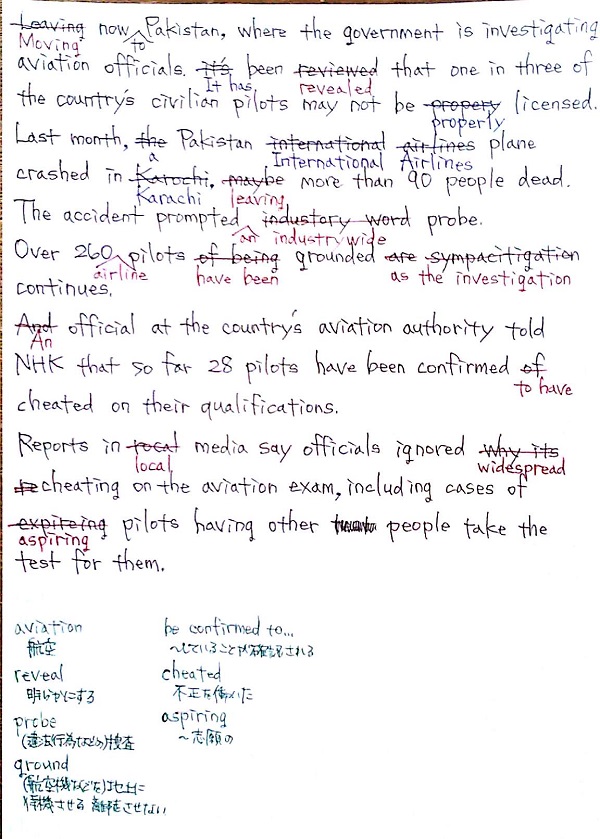 Leaving now Pakistan, where the government is investigating
Moving to
aviation officials. it's been reviewed that one in three of
It has revealed
the country's civilian pilots may not be propery licensed.
properly
Last month, the Pakistan international airlines plane
a International Airlines
crashed in Karochi, maybe more than 90 people dead.
Karachi leaving
The accident prompted industory word probe.
an industrywide
Over 260 pilots of being grounded are sympacitigation
airline have been as the investigation
continues.
And official at the country's aviation authority told
An
NHK that so far 28 pilots have been confirmed of
to have
cheated on their qualifications.
Reports in rocal media say officials ignored why its
local widespread
cheating on the aviation exam, including cases of
expireing pilots having other people take the
aspiring
test for them.
aviation be confirmed to...
航空 〜していることが確認される
reveal cheated
明らかにする 不正を働いた
probe aspiring
(違法行為などの)捜査 〜志願の
ground
(航空機などを)地上に
待機させる 離陸させない